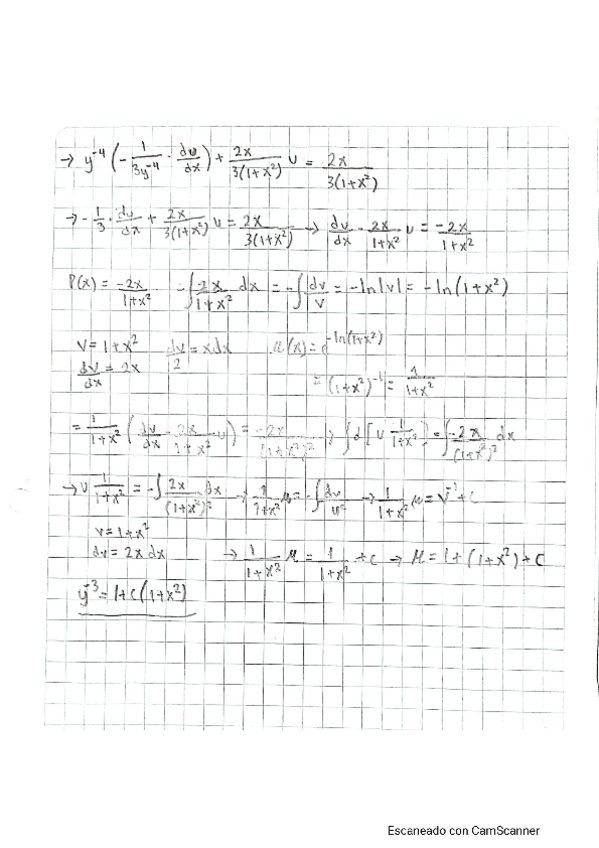 → y⁻⁴ (- 1/(3y⁻⁴) · du/dx) + 2x/(3(1+x²)) u = 2x/(3(1+x²))
→ - 1/3 · du/dx + 2x/(3(1+x²)) u = 2x/(3(1+x²)) → du/dx - 2x/(1+x²) u = -2x/(1+x²)
P(x) = -2x/(1+x²) -∫ 2x/(1+x²) dx = -∫ dv/v = -ln|v| = -ln(1+x²)
v = 1+x² dv/2 = xdx μ(x) = e^(-ln(1+x²))
dv/dx = 2x = (1+x²)⁻¹ = 1/(1+x²)
= 1/(1+x²) (du/dx - 2x/(1+x²) u) = -2x/(1+x²)² → ∫ d[u 1/(1+x²)] = ∫ -2x/(1+x²)² dx
→ u 1/(1+x²) = -∫ 2x/(1+x²)² dx → 1/(1+x²) μ = -∫ dv/v² → 1/(1+x²) μ = v⁻¹ + c
v = 1+x²
dv = 2x dx → 1/(1+x²) μ = 1/(1+x²) + c → μ = 1+(1+x²)+c
y⁻³ = 1+c(1+x²)
Escaneado con CamScanner